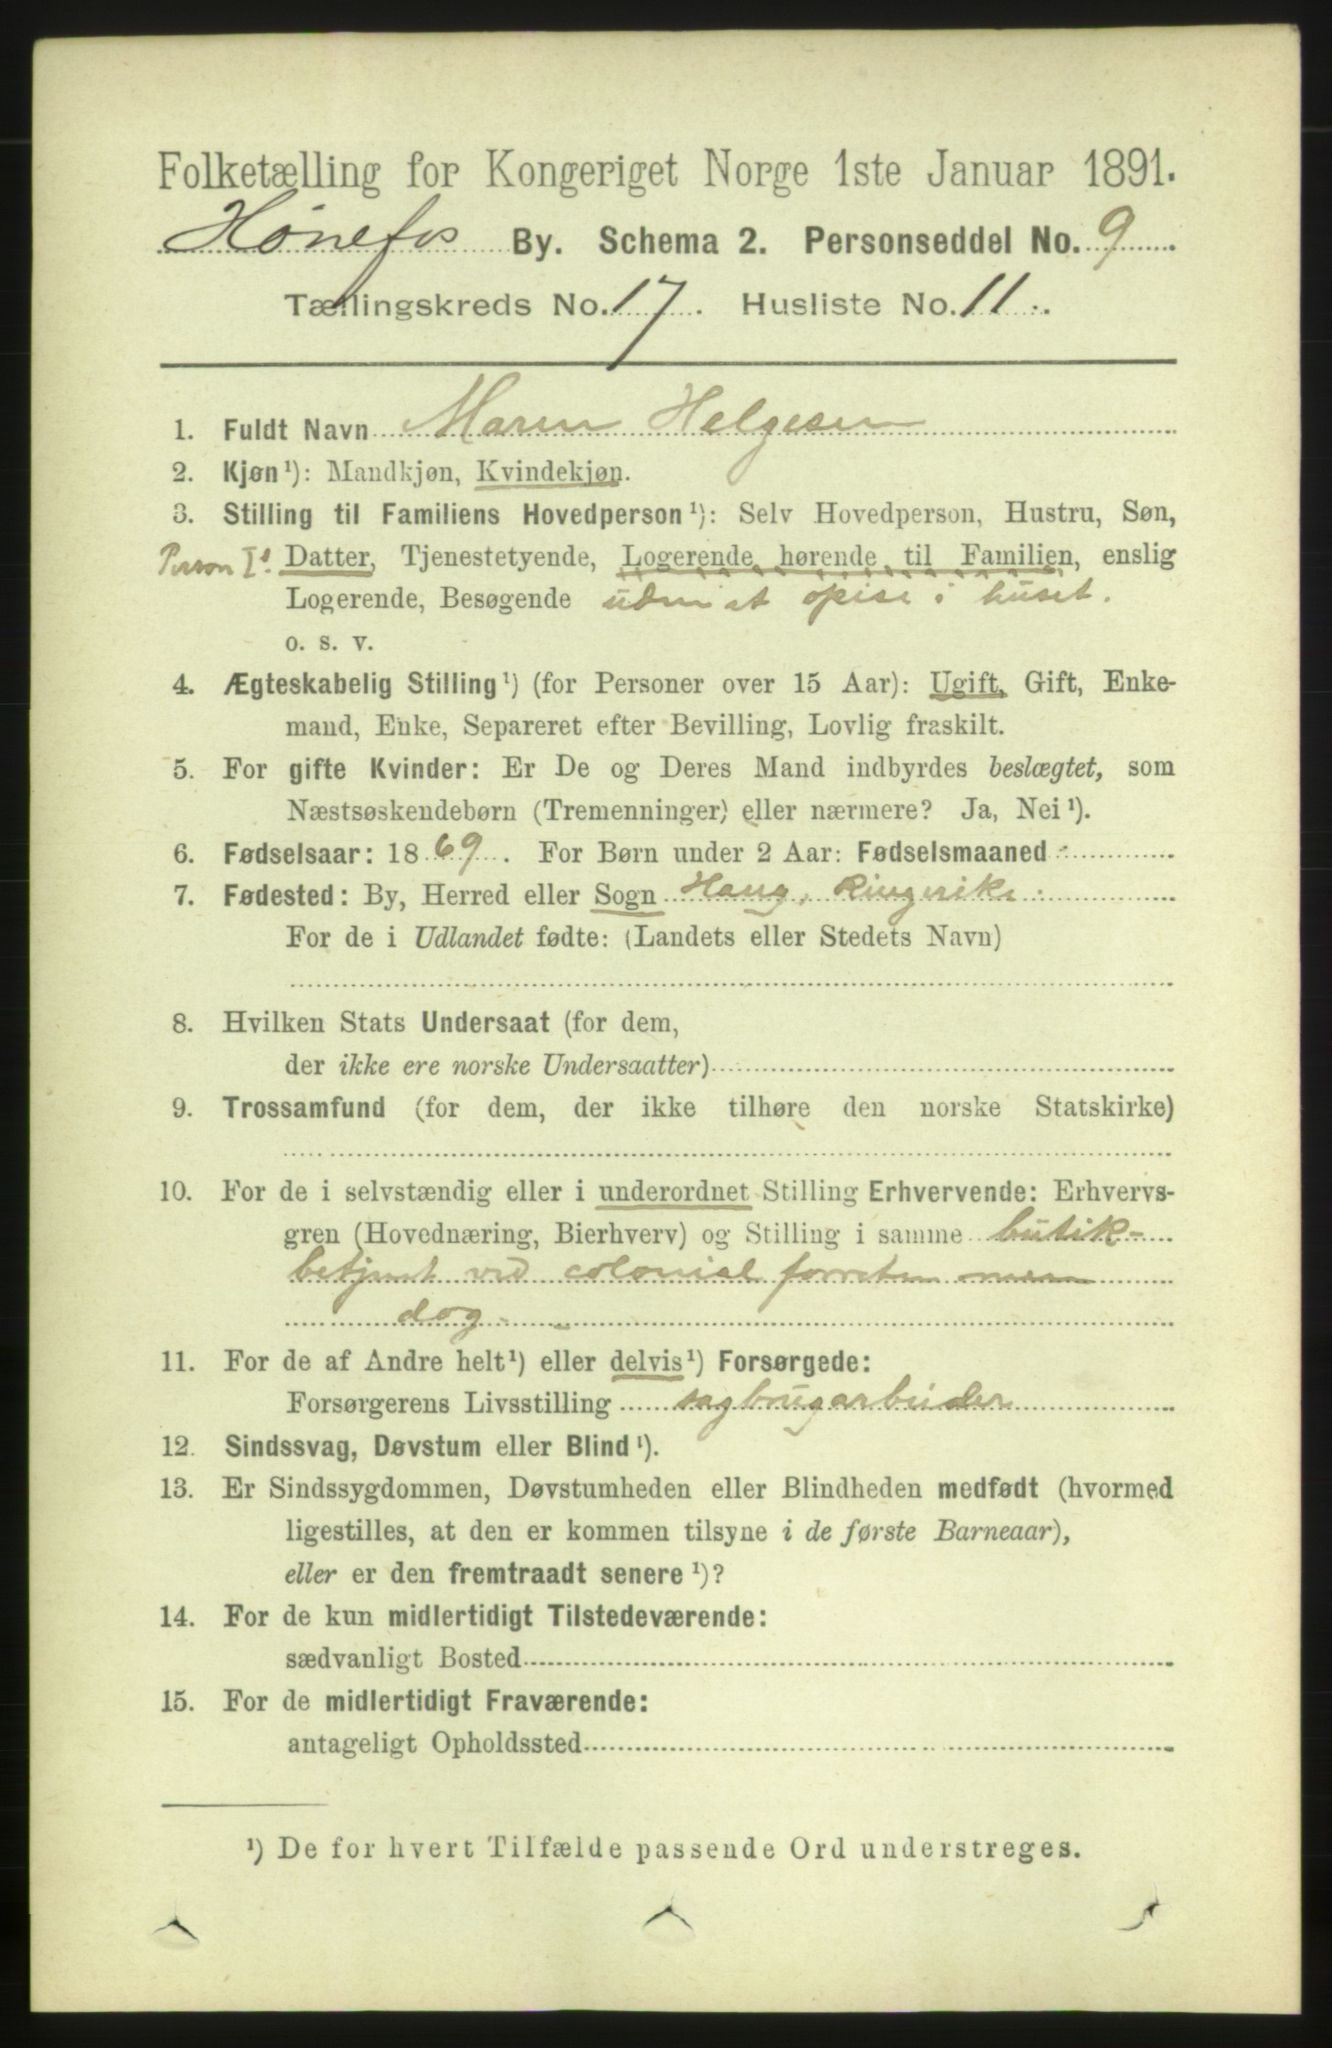 Folketælling for Kongeriget Norge 1ste Januar 1891.
Hønefos By. Schema 2. Personseddel No. 9
Tællingskreds No. 17. Husliste No. 11.
1. Fuldt Navn Maren Helgesen
2. Kjøn¹): Mandkjøn, Kvindekjøn.
3. Stilling til Familiens Hovedperson¹): Selv Hovedperson, Hustru, Søn,
Person I's Datter, Tjenestetyende, Logerende hørende til Familien, enslig
Logerende, Besøgende uden at spise i huset.
o. s. v.
4. Ægteskabelig Stilling¹) (for Personer over 15 Aar): Ugift, Gift, Enke-
mand, Enke, Separeret efter Bevilling, Lovlig fraskilt.
5. For gifte Kvinder: Er De og Deres Mand indbyrdes beslægtet, som
Næstsøskendebørn (Tremenninger) eller nærmere? Ja, Nei¹).
6. Fødselsaar: 1869. For Børn under 2 Aar: Fødselsmaaned
7. Fødested: By, Herred eller Sogn Haug, Ringerike
For de i Udlandet fødte: (Landets eller Stedets Navn)
8. Hvilken Stats Undersaat (for dem,
der ikke ere norske Undersaatter)
9. Trossamfund (for dem, der ikke tilhøre den norske Statskirke)
10. For de i selvstændig eller i underordnet Stilling Erhvervende: Erhvervs-
gren (Hovednæring, Bierhverv) og Stilling i samme butik-
betjent ved colonial forretn
dog
11. For de af Andre helt¹) eller delvis¹) Forsørgede:
Forsørgerens Livsstilling sagbrugarbeider
12. Sindssvag, Døvstum eller Blind¹).
13. Er Sindssygdommen, Døvstumheden eller Blindheden medfødt (hvormed
ligestilles, at den er kommen tilsyne i de første Barneaar),
eller er den fremtraadt senere¹)?
14. For de kun midlertidigt Tilstedeværende:
sædvanligt Bosted
15. For de midlertidigt Fraværende:
antageligt Opholdssted
¹) De for hvert Tilfælde passende Ord understreges.